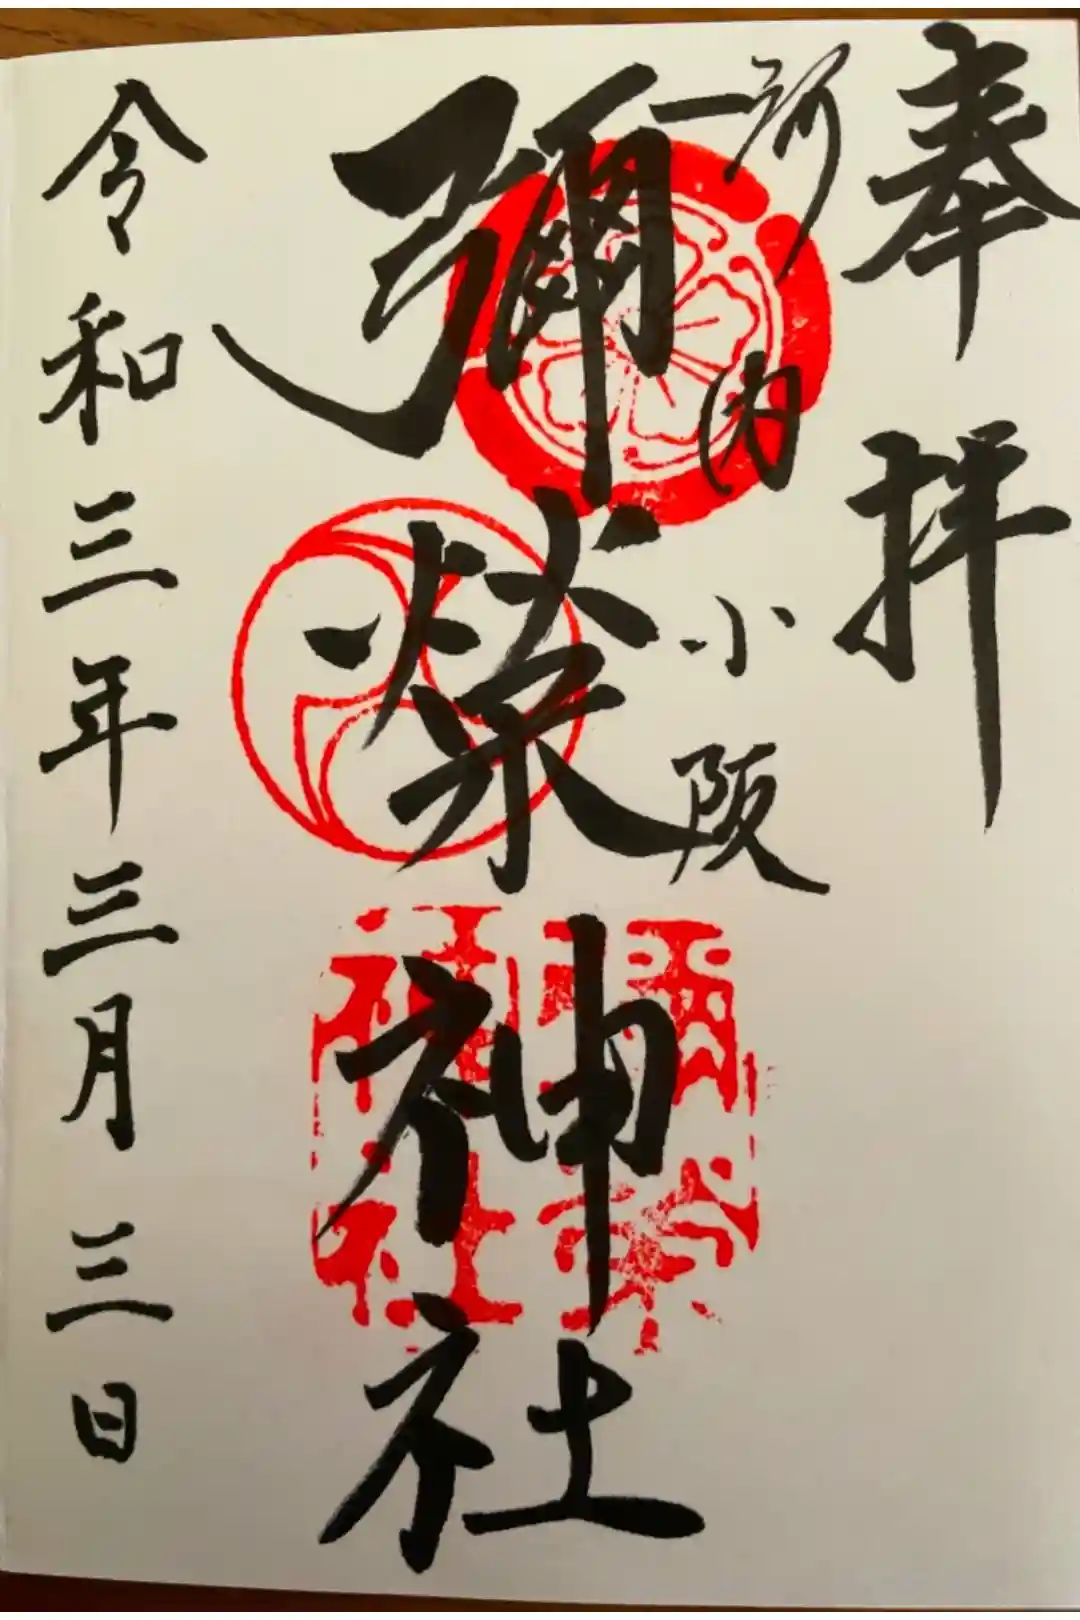 奉拝
河内小阪
彌榮神社
令和三年三月三日
彌榮神社